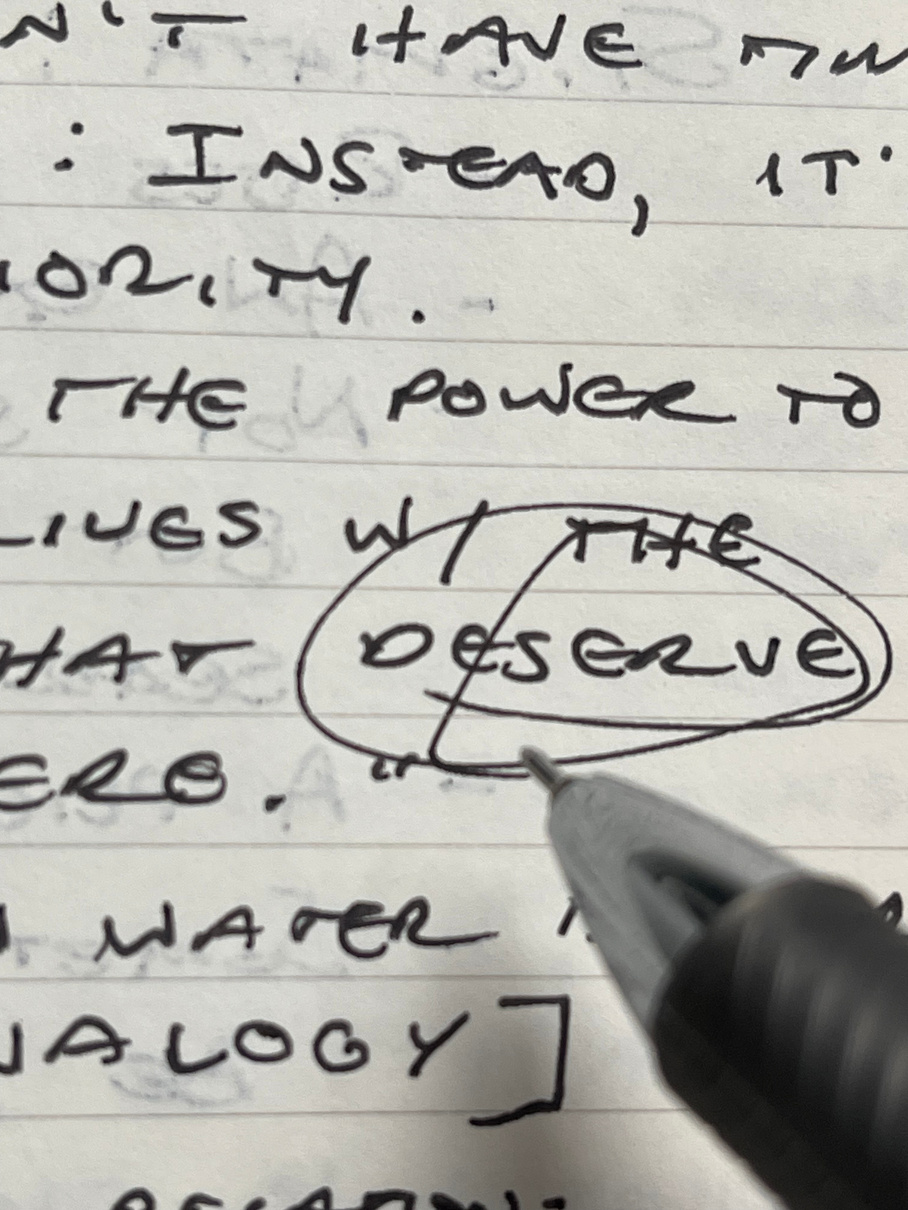 N'T HAVE
: INSTEAD, IT'
IORITY.
THE POWER TO
LIVES W/ THE
HAT DESERVE
ERE.
WATER
NALOGY]